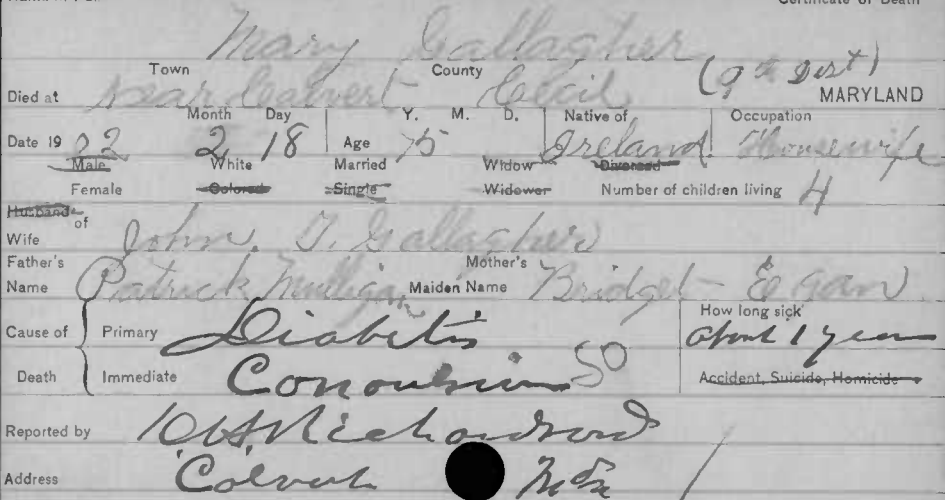 Certificate of Death
Mary Gallagher
Town County (9th Dist)
Died at near Calvert Cecil MARYLAND
Month Day Y. M. D. Native of Occupation
Date 1902 2 18 Age 75 Ireland Housewife
Male White Married Widow Divorced
Female Colored Single Widower Number of children living 4
Husband of
Wife John T. Gallagher
Father's Mother's
Name Patrick Mulligan Maiden Name Bridget Egan
How long sick
Cause of Primary Diabetis about 1 year
Death Immediate 50 Accident, Suicide, Homicide
Reported by Richardson
Address Calvert Md